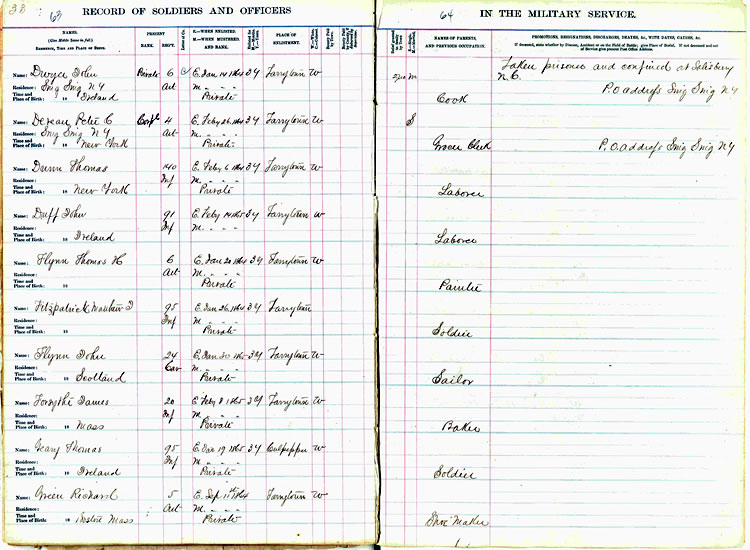 33
63
RECORD OF SOLDIERS AND OFFICERS
NAMES.
(Give Middle Name in full.)
RESIDENCE, TIME AND PLACE OF BIRTH.
PRESENT
RANK.
REGT.
E.—WHEN ENLISTED.
M.—WHEN MUSTERED.
AND RANK.
PLACE OF
ENLISTMENT.
Name: Dwyer John Private 6 E. Jan 14 1864 3 y Tarrytown W
Residence: Sing Sing N Y Art M " " "
Time and Place of Birth: 18 Ireland Private
Name: Dejean Peter C Corpl 4 E. Feby 26 1864 3 y Tarrytown W
Residence: Sing Sing N Y Art M " " "
Time and Place of Birth: 18 New York Private
Name: Dunn Thomas 140 E. Feby 6 1864 3 y Tarrytown W
Residence: Inf M " " "
Time and Place of Birth: 18 New York Private
Name: Duff John 91 E. Feby 14 1865 3 y Tarrytown W
Residence: Inf M. " " "
Time and Place of Birth: 18 Ireland
Name: Flynn Thomas H 6 E. Jan 20 1864 3 y Tarrytown W
Residence: Art M. " " "
Time and Place of Birth: 18 Private
Name: Fitzpatrick 95 E. Jan 26 1864 3 y Tarrytown
Residence: Inf M. " " "
Time and Place of Birth: 18 Private
Name: Flynn John 24 E. Jan 30 1865 3 y Tarrytown W
Residence: Cav M. " " "
Time and Place of Birth: 18 Scotland Private
Name: Forsythe James 20 E. Feby 8 1865 3 y Tarrytown W
Residence: Inf M. " " "
Time and Place of Birth: 18 Mass Private
Name: Geary Thomas 95 E. 19 1865 3 y Culpepper W
Residence: Inf M. " " "
Time and Place of Birth: 18 Ireland Private
Name: Green Richard 5 E. Sep 1st 1864 Tarrytown W
Residence: Art M. " " "
Time and Place of Birth: 18 Boston Mass Private
64
IN THE MILITARY SERVICE.
NAMES OF PARENTS,
AND PREVIOUS OCCUPATION.
PROMOTIONS, RESIGNATIONS, DISCHARGES, DEATHS, &c., WITH DATES, CAUSES, &c.
If deceased, state whether by Disease, Accident or on the Field of Battle; give Place of Burial. If not deceased and out of Service give present Post Office Address.
M Taken prisoner and confined at Salisbury
N.C.
P.O address Sing Sing N Y
Cook
S
Grocer Clerk P.O. address Sing Sing N Y
Laborer
Laborer
Painter
Soldier
Sailor
Baker
Soldier
Shoe Maker